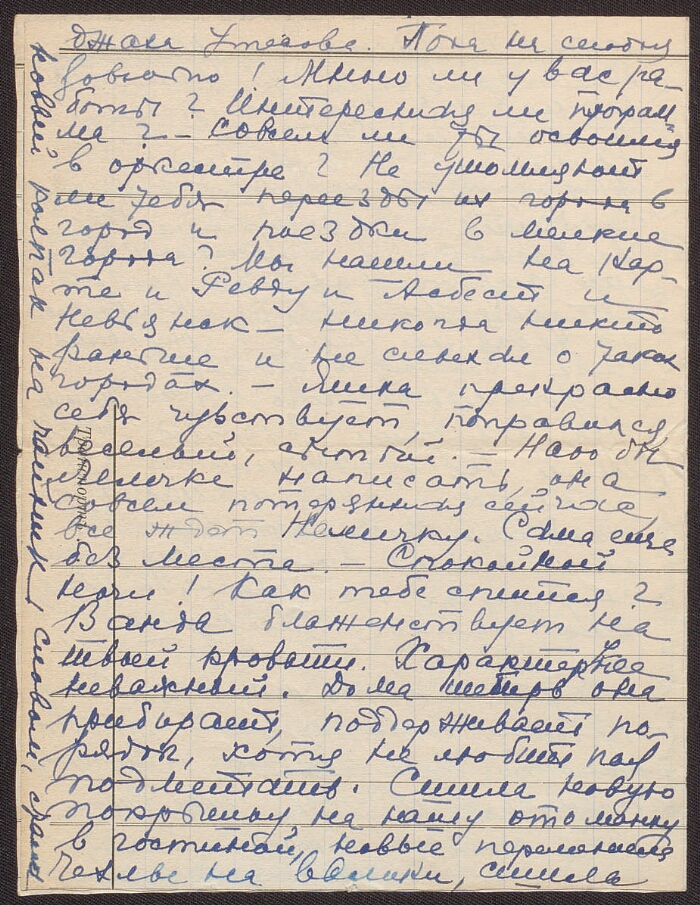 джаза Утесова. Пока на сегодня
довольно! Много ли у вас ра-
боты? Интересная ли програм
ма? – Совсем ли ты освоился
в оркестре? Не утомляют
ли тебя переезды из города в
город и поездки в мелкие
города? Мы нашли на кар-
те и Ревду и Асбест и
Невьянск – никогда никто
раньше и не слыхал о таких
городах. –  прекрасно
себя чувствует, поправился,
веселый, сытый. – Надо бы
написать, она
совсем потерянная сейчас,
все ждет Сама еще
без места. – Спокойной
ночи! Как тебе спится?
Ванда блаженствует на
твоей кровати. Характер ее
неважный. Дома теперь она
прибирает, поддерживает по-
рядок, хотя не любит пол
подметать. Сшила новую
покрышку на нашу отоманку
в гостиной, новые
чехлы на валики, сшила
новый колпак на чайник, словом,